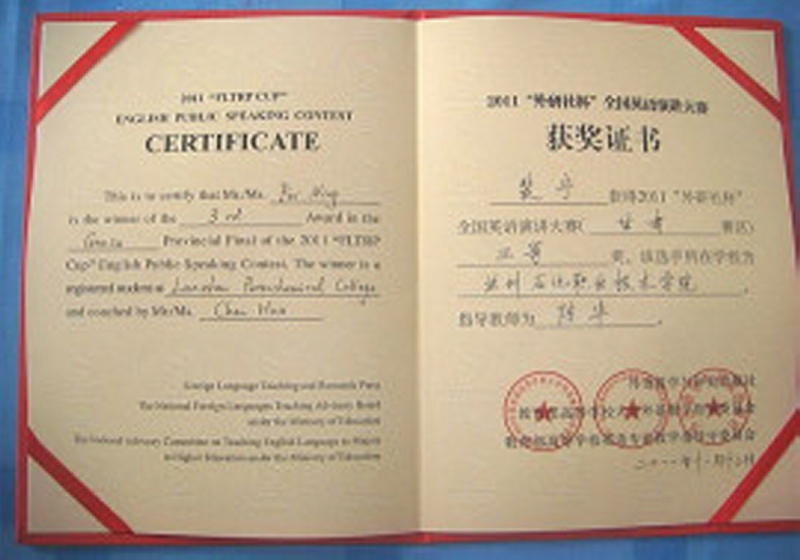 2011 "FLTRP CUP"
ENGLISH PUBLIC SPEAKING CONTEST
CERTIFICATE
This is to certify that Mr./Ms. Ning
is the winner of the 3rd Award in the
Gansu Provincial Final of the 2011 "FLTRP
Cup" English Public Speaking Contest. The winner is a
registered student at Lanzhou Petrochemical College
and coached by Mr./Ms. Chen Hua
Foreign Language Teaching and Research Press
The National Foreign Languages Teaching Advisory Board
under the Ministry of Education
The National Advisory Committee on Teaching English Language to Majors
in Higher Education under the Ministry of Education
2011 "外研社杯" 全国英语演讲大赛
获奖证书
获得2011 "外研社杯"
全国英语演讲大赛( 甘肃 赛区)
三等 奖,该选手所在学校为
兰州石化职业技术学院 ,
指导教师为 陈华 。
外语教学与研究出版社